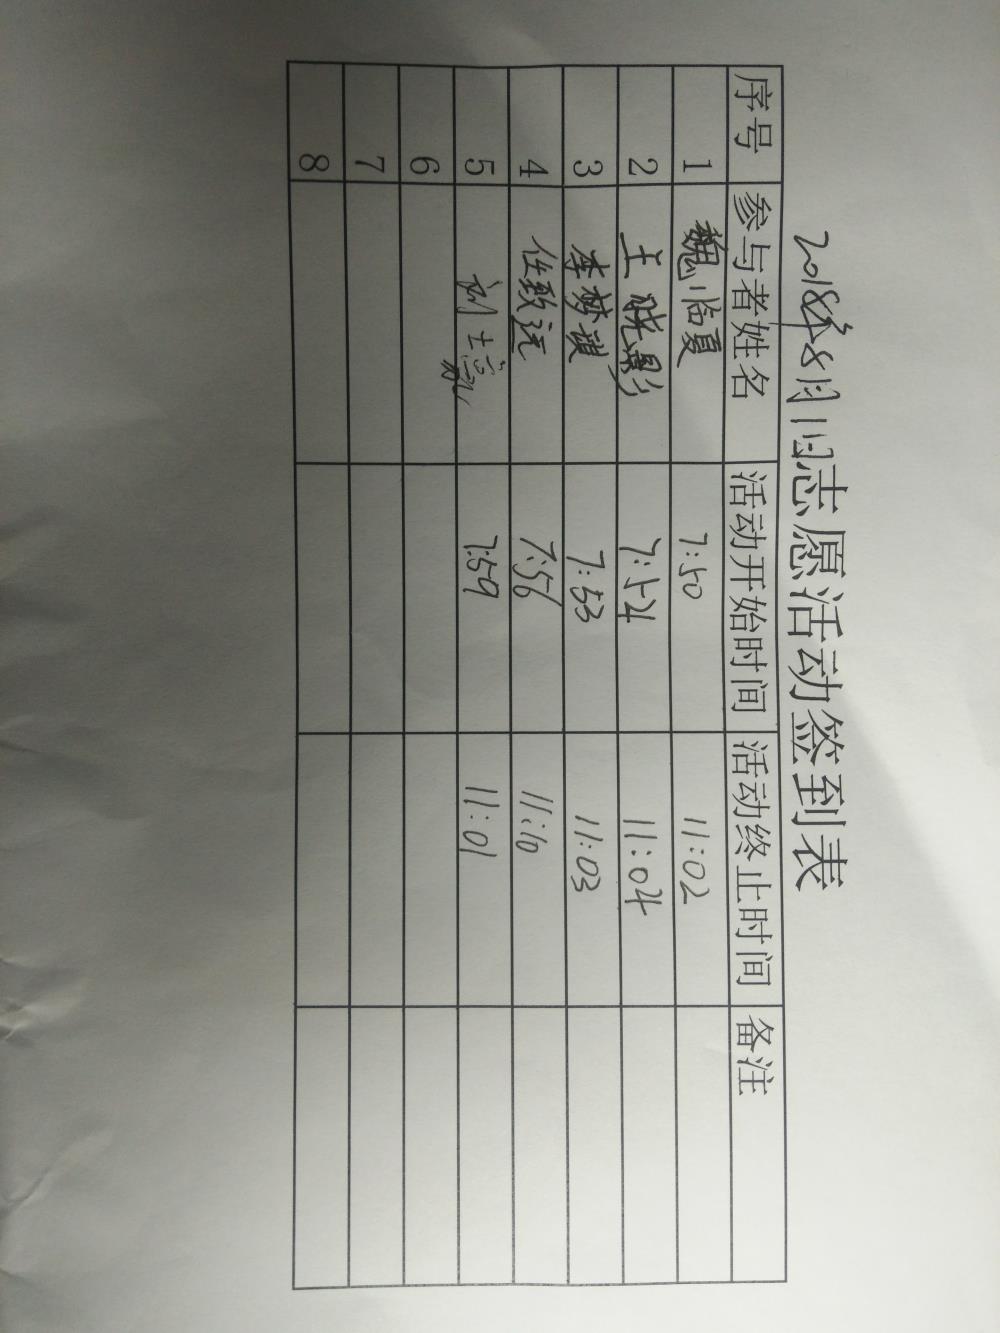 2018年8月1日志愿活动签到表
序号 参与者姓名 活动开始时间 活动终止时间 备注
1 魏临夏 7:50 11:02
2 王晓影 7:54 11:04
3 李梦琪 7:53 11:03
4 任致远 7:56 11:10
5 7:59 11:01
6
7
8